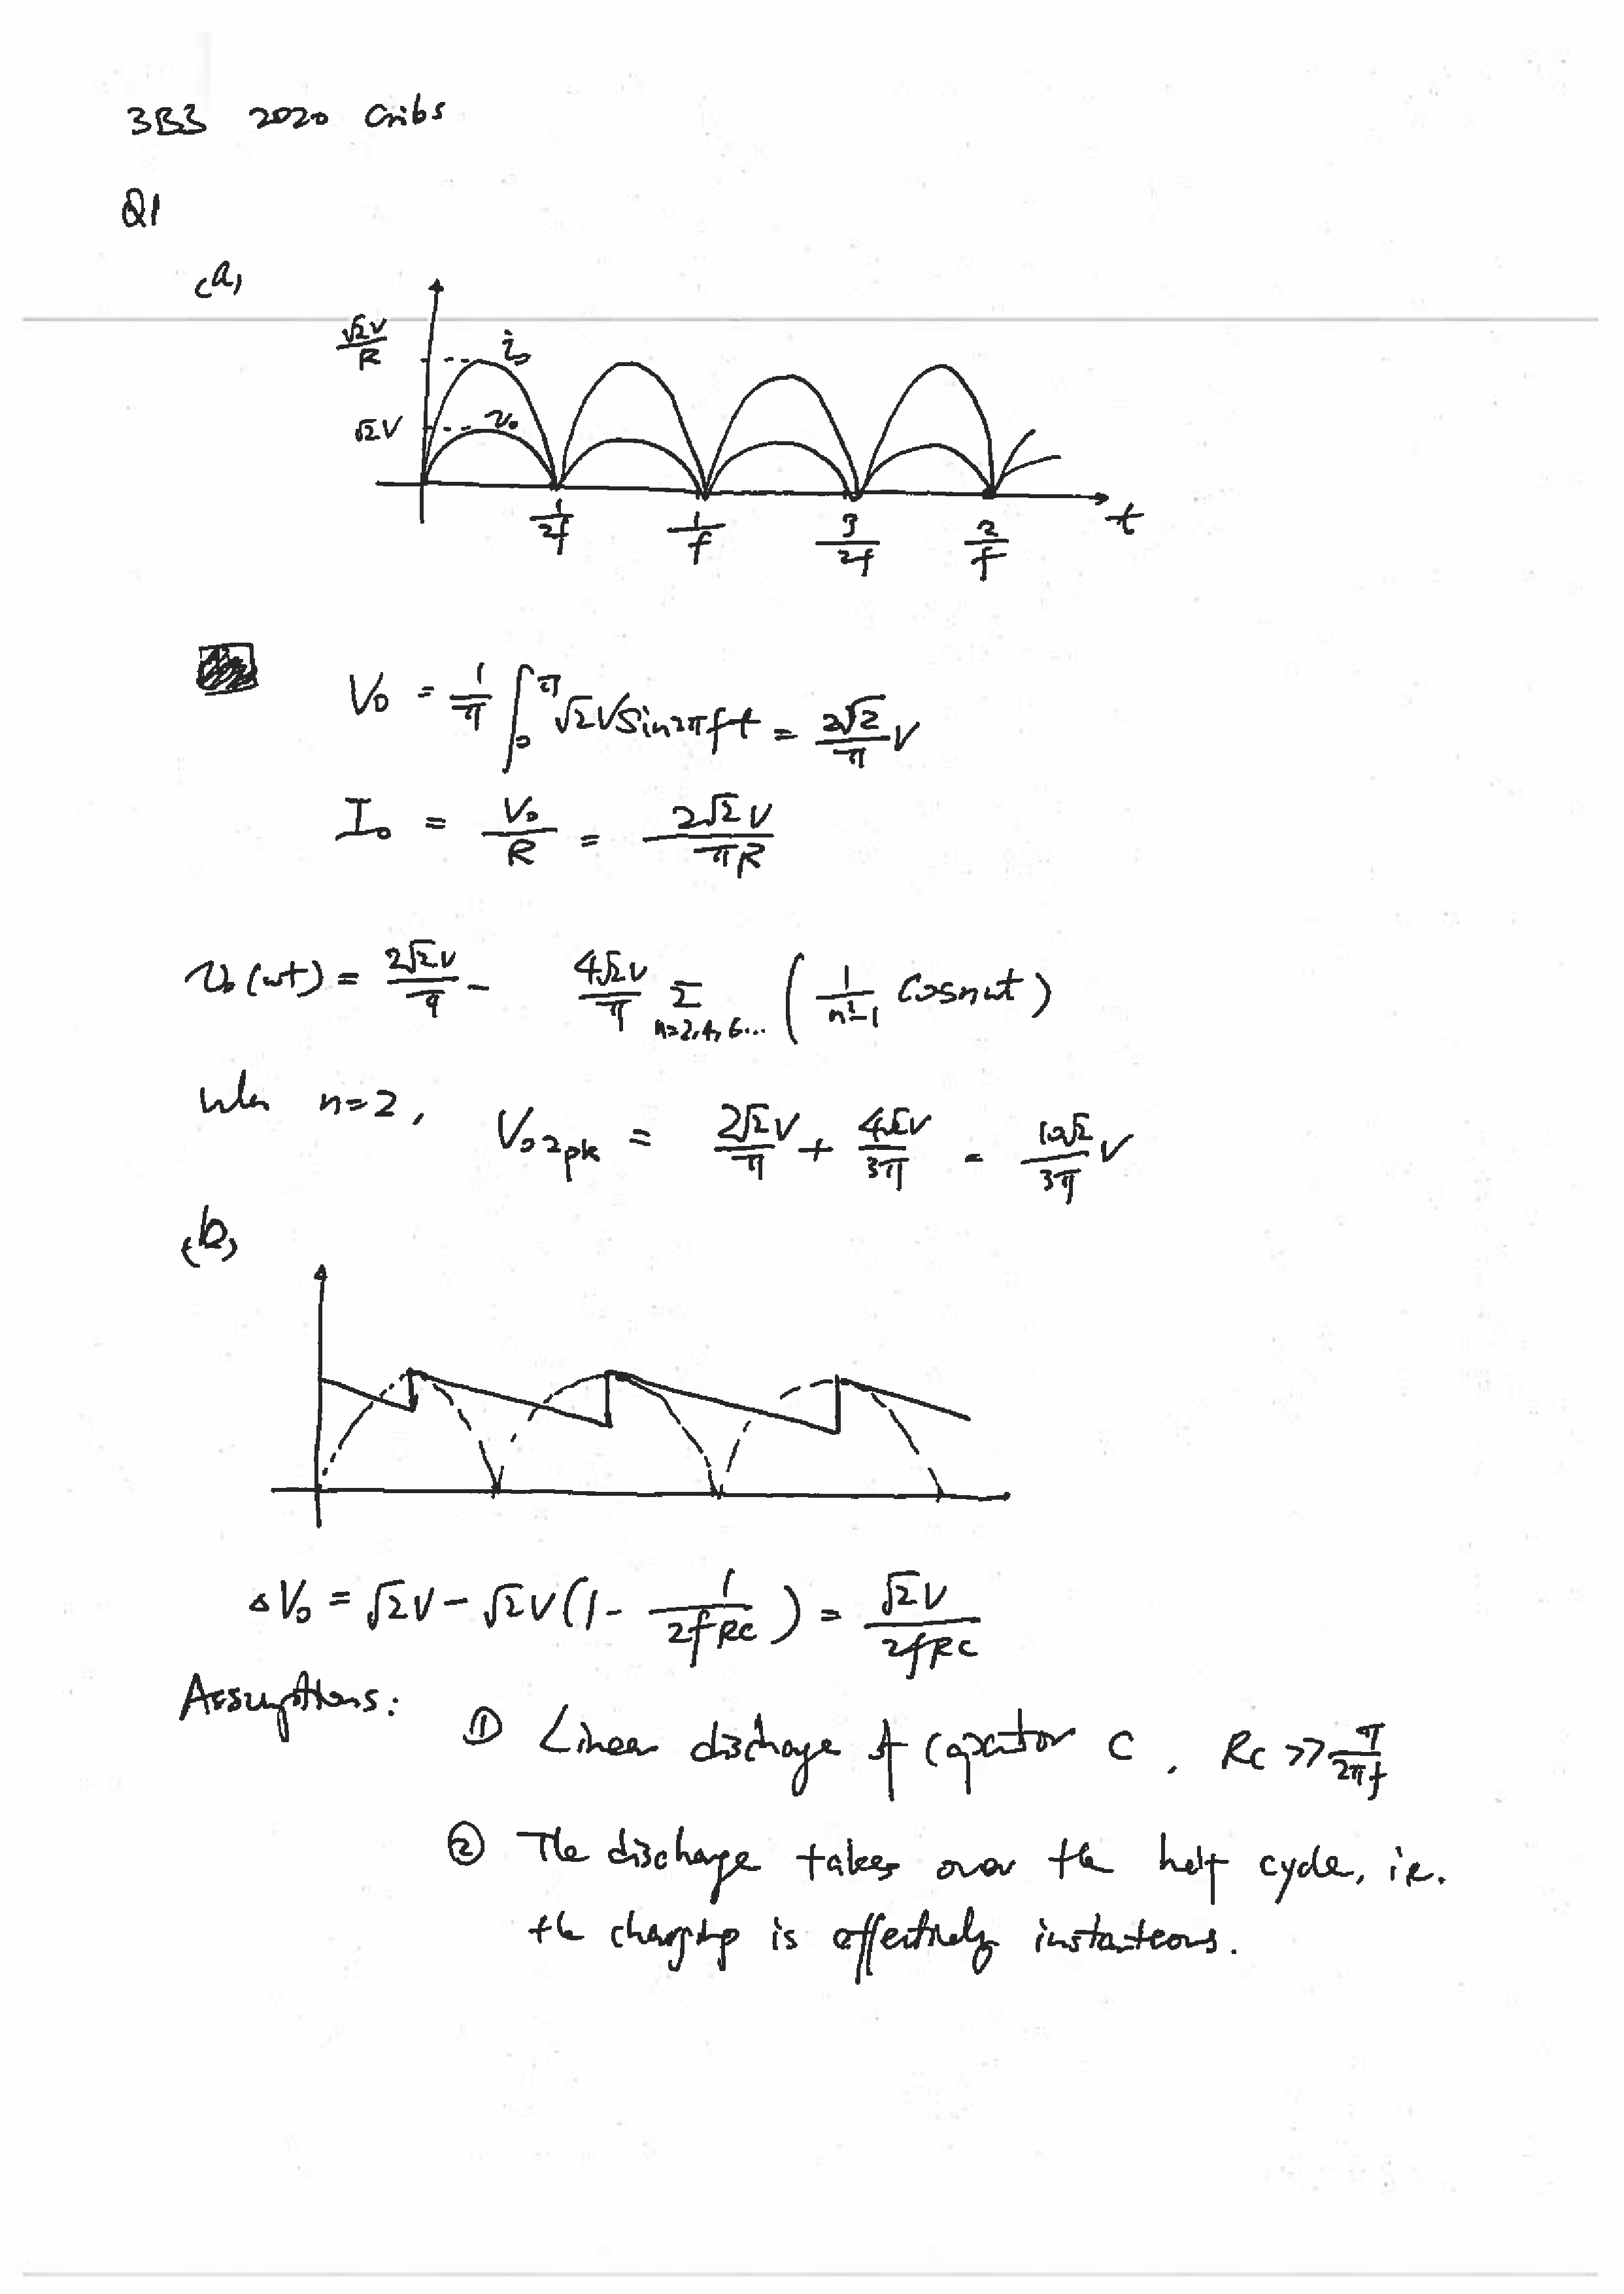 3B3 2020 Cribs
Q1
(a)
√2V/R
i₀
√2V
v₀
1/2f 1/f 3/2f 2/f t
V₀ = 1/π ∫₀^π √2 V Sin 2πft = 2√2/π V
I₀ = V₀/R = 2√2 V/πR
v₀(ωt) = 2√2V/π - 4√2V/π Σ n=2,4,6... (1/n²-1 Cosnωt)
when n=2, V₀₂pk = 2√2V/π + 4√2V/3π = 10√2/3π V
(b)
ΔV₀ = √2V - √2V(1 - 1/2fRC) = √2V/2fRC
Assumptions:
① Linear discharge of capacitor C, RC >> π/2πf
② The discharge takes over the half cycle, i.e.
the charging is effectively instanteous.